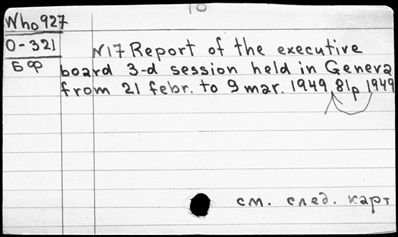 10
Who 927
O-321
БФ
N17 Report of the executive
board 3-d session held in Geneva
from 21 febr. to 9 mar. 1949, 81p 1949
см. след. карт